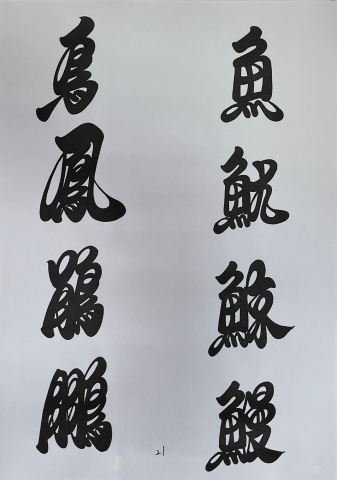 魚魷鰻
鳥鳳鵬
21